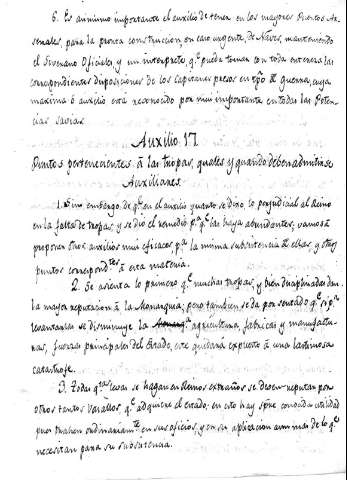 6. Es asimismo importante el auxilio de tener en los mayores Puertos Ar-
senales, para la pronta construccion, en caso urgente, de Naves, manteniendo
el Soverano Oficiales, y un interprete, q.e pueda tomar con toda entereza las
correspondientes disposiciones de los Capitanes presos en tpo. de Guerra, cuya
maxima ô auxilio está reconocido por mui importante en todas las Poten-
cias savias.
Auxilio 17.
Puntos pertenecientes â las tropas, quales y quando deben admitirse
Auxiliares.
1. Sin embargo de q.e en el auxilio quarto se dixo, lo perjudicial al Reino
en la falta de tropas, y se dió el remedio p.a q.e las haya abundantes, vamos â
proponer otros auxilios mui eficaces, p.a la misma subsistencia de ellas, y otros
puntos correspond.tes â esta materia.
2. Se asienta lo primero q.e muchas tropas, y bien disciplinadas dan
la mayor reputacion â la Monarquia; pero tambien se da por sentado q.e si p.a
levantarlas se disminuye la agricultura, fabricas, y manufactu-
ras, fuerzas principales del Estado, este quedará expuesto â una lastimosa
catastrofe.
3. Todas q.tas levas se hagan en Reinos extraños se deven reputar por
otros tantos Vasallos, q.e adquiere el estado; en esto hay spre. conocida utilidad
pues trahen ordinariam.te en sus oficios, y en su aplicacion aun mas de lo q.e
necesitan para su subsistencia.